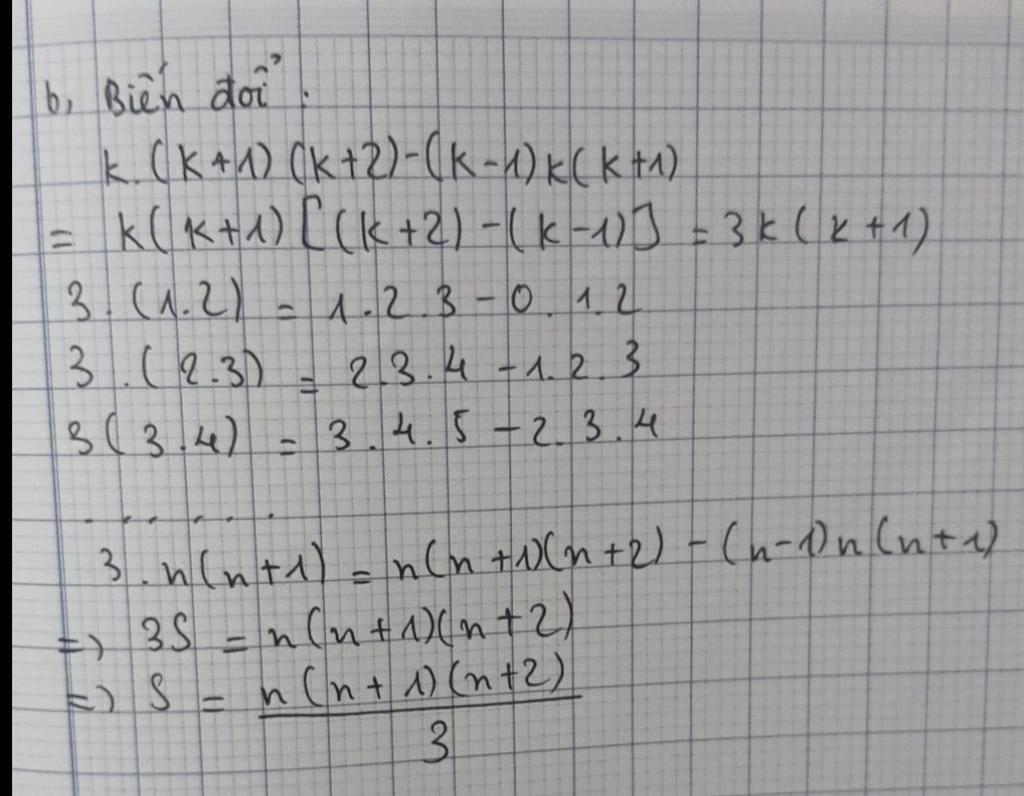 b, Biến đổi :
k.(k+1)(k+2)-(k-1)k(k+1)
= k(k+1)[(k+2)-(k-1)] = 3k(k+1)
3.(1.2) = 1.2.3-0.1.2
3.(2.3) = 2.3.4-1.2.3
3(3.4) = 3.4.5-2.3.4
......
3.n(n+1) = n(n+1)(n+2)-(n-1)n(n+1)
=> 3S = n(n+1)(n+2)
=> S = n(n+1)(n+2)
3